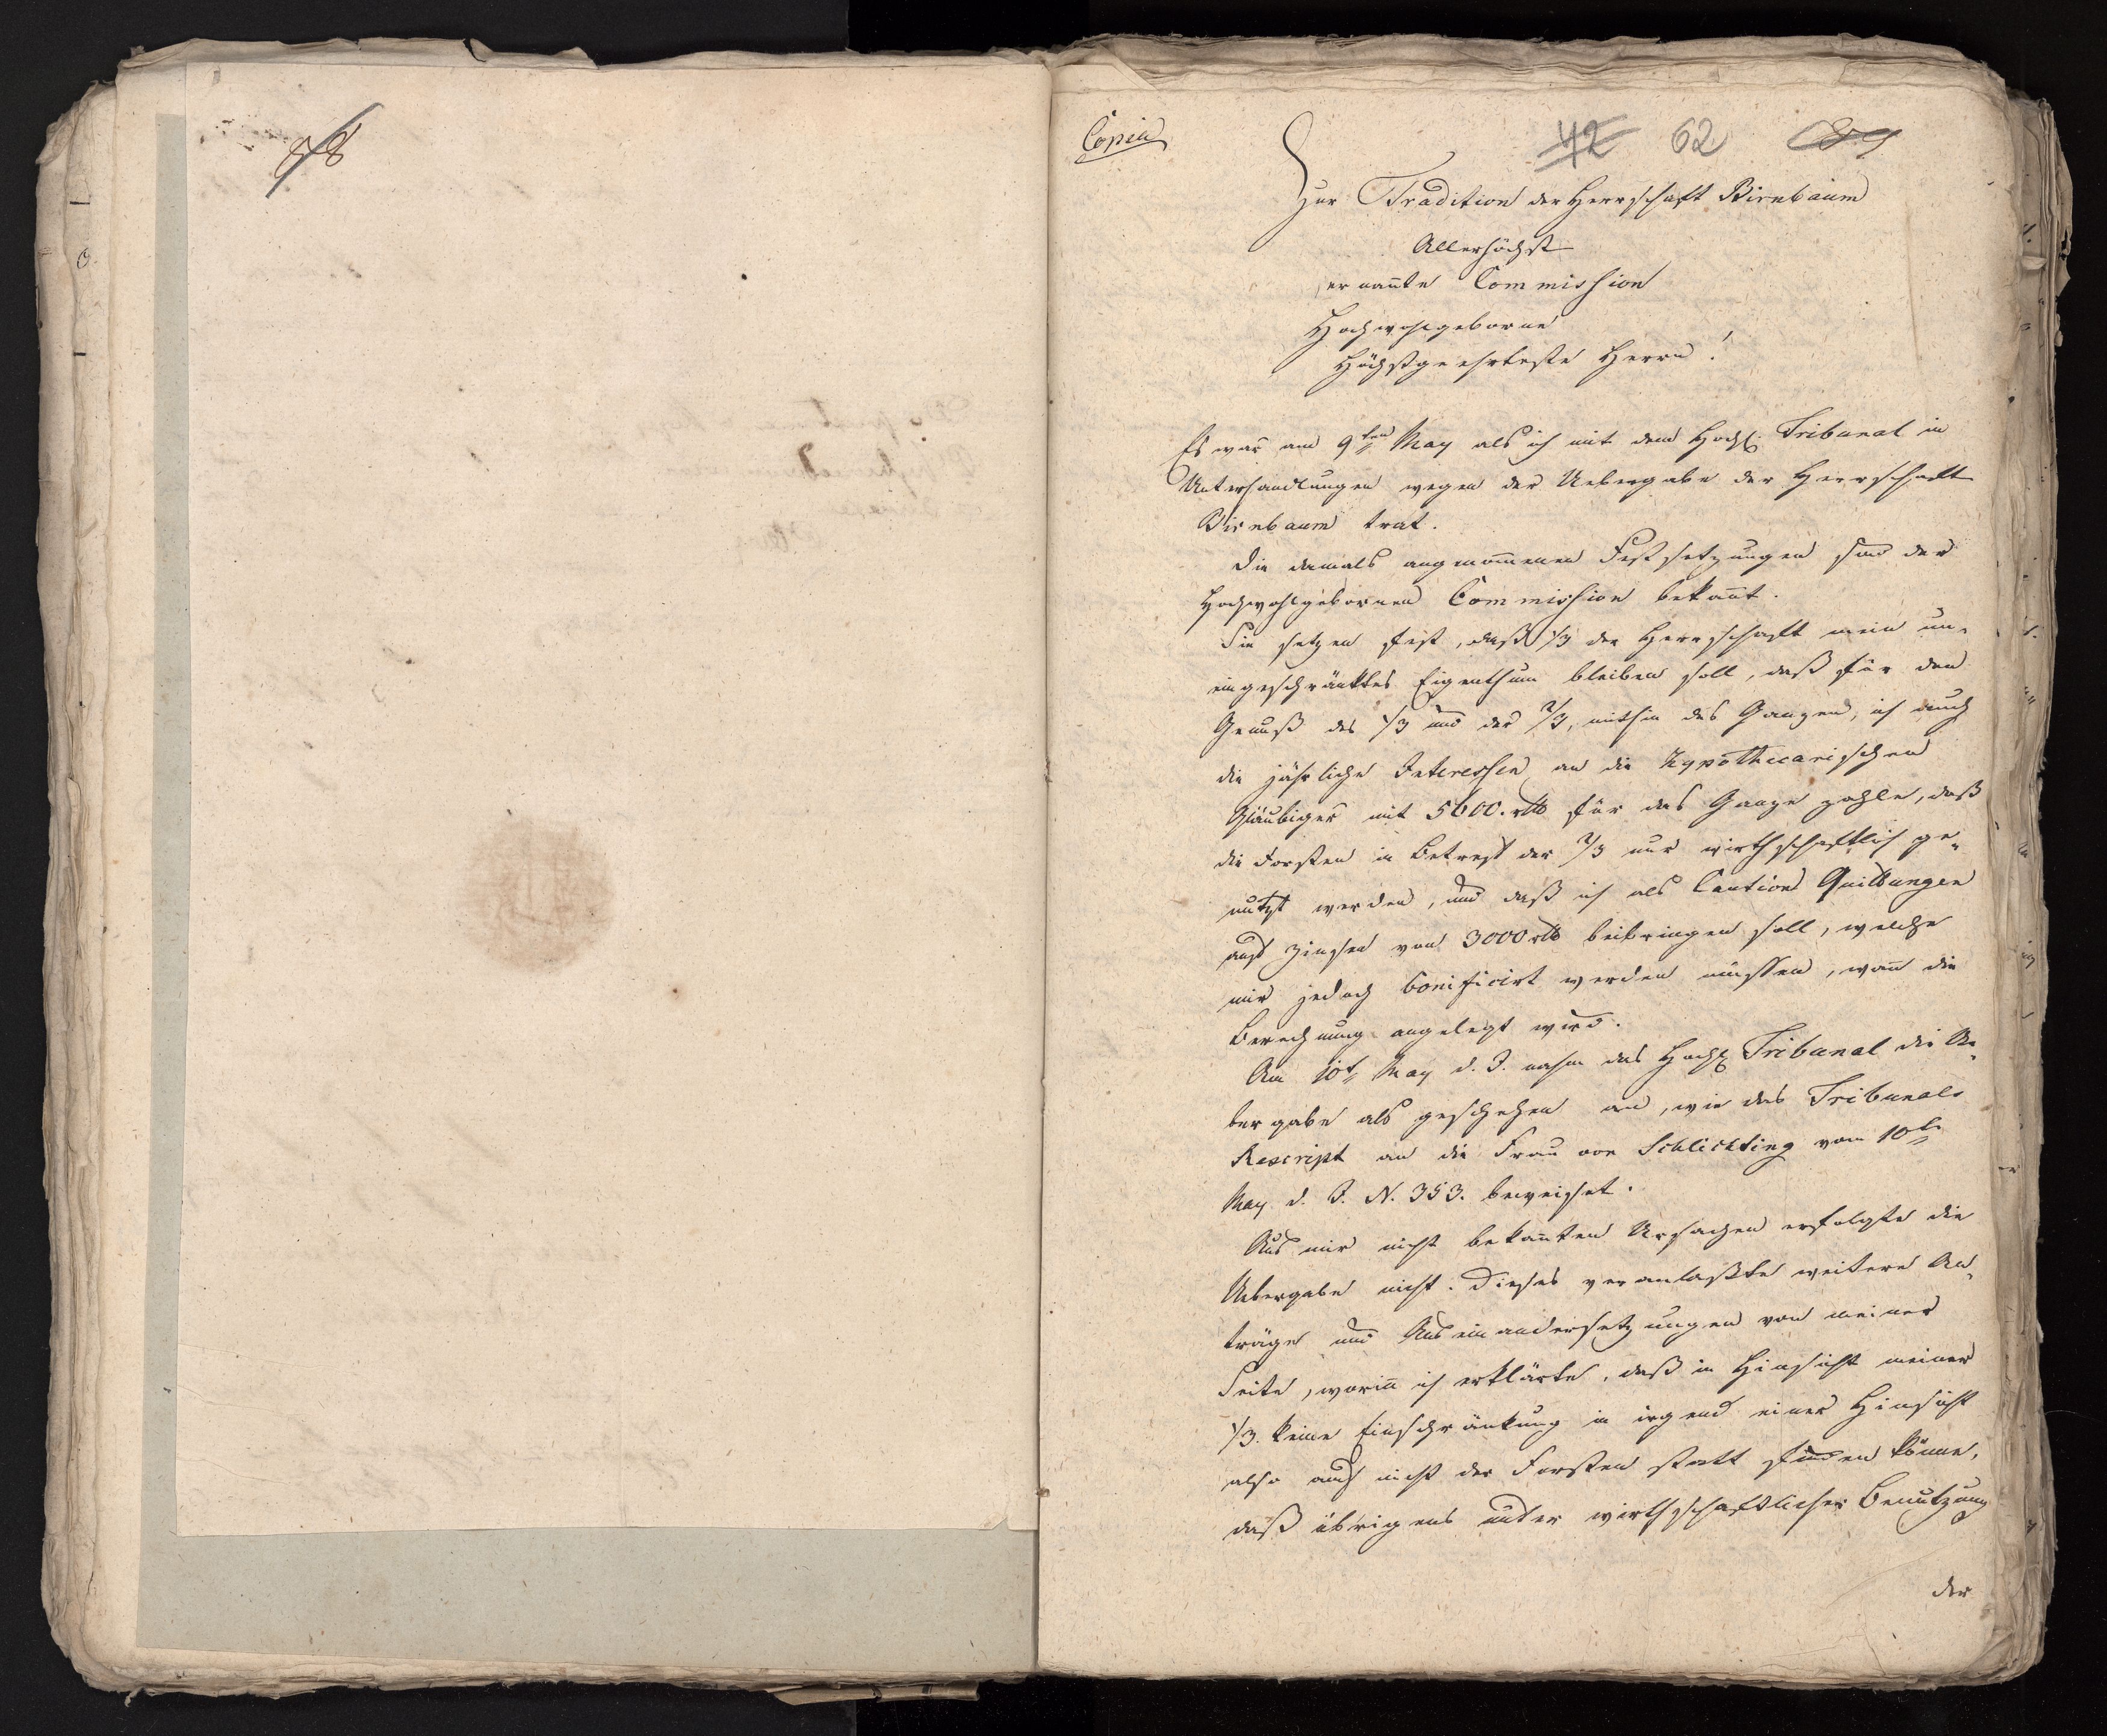 88
Copia
42 62 89
Zur Tradition der Herrschaft Birnbaum
Allerhöchst
ernan̄te Commission
Hochwohlgeborne
Höchstgeehrteste Herrn!
Es war am 9ten May als ich mit dem Hochl. Tribunal in
Unterhandlungen wegen der Uebergabe der Herrschaft
Birnbaum trat.
Die damals angenom̄enen Festsetzungen sind der
Hochwohlgebornen Commission bekan̄t.
Sie setzen fest, daß 1/3 der Herrschaft mein un-
eingeschränktes Eigenthum bleiben soll, daß für den
Genuß des 1/3 und der 2/3, mithin des Ganzen, ich auch
die jährliche Interessen an die hypothecarischen
Gläubiger mit 5600. rtl für das Ganze zahle, daß
die Forsten in Betreff der 2/3 nur wirthschaftlich ge-
nutzt werden, und daß ich als Caution Quittungen
auf Zinsen von 3000 rtl beibringen soll, welche
mir jedoch bonificirt werden müssen, wan̄ die
Berechnung angelegt wird.
Am 10t May d. J. nahm das Hochl. Tribunal die Ue-
bergabe als geschehen an, wie das Tribunals
Rescript an die Frau von Schlichting vom 10te
May d. J. N. 353. beweiset.
Aus mir nicht bekan̄ten Ursachen erfolgte die
Uebergabe nicht. Dieses veranlaßte weitere An-
träge und Auseinandersetzungen von meiner
Seite, worin̄ ich erklärte, daß in Hinsicht meiner
1/3. keine Einschränkung in irgend einer Hinsicht
also auch nicht der Forsten statt finden könne,
daß übrigens unter wirthschaftlicher Benutzung
der